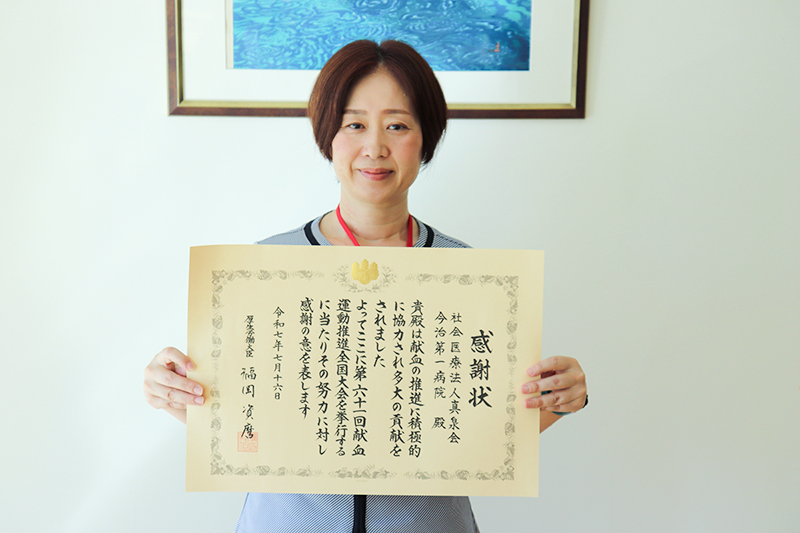 感謝状
社会医療法人真泉会
今治第一病院 殿
貴殿は献血の推進に積極的
に協力され多大の貢献を
されました
よってここに第六十一回献血
運動推進全国大会を挙行する
に当たりその努力に対し
感謝の意を表します
令和七年七月十六日
厚生労働大臣 福岡資麿